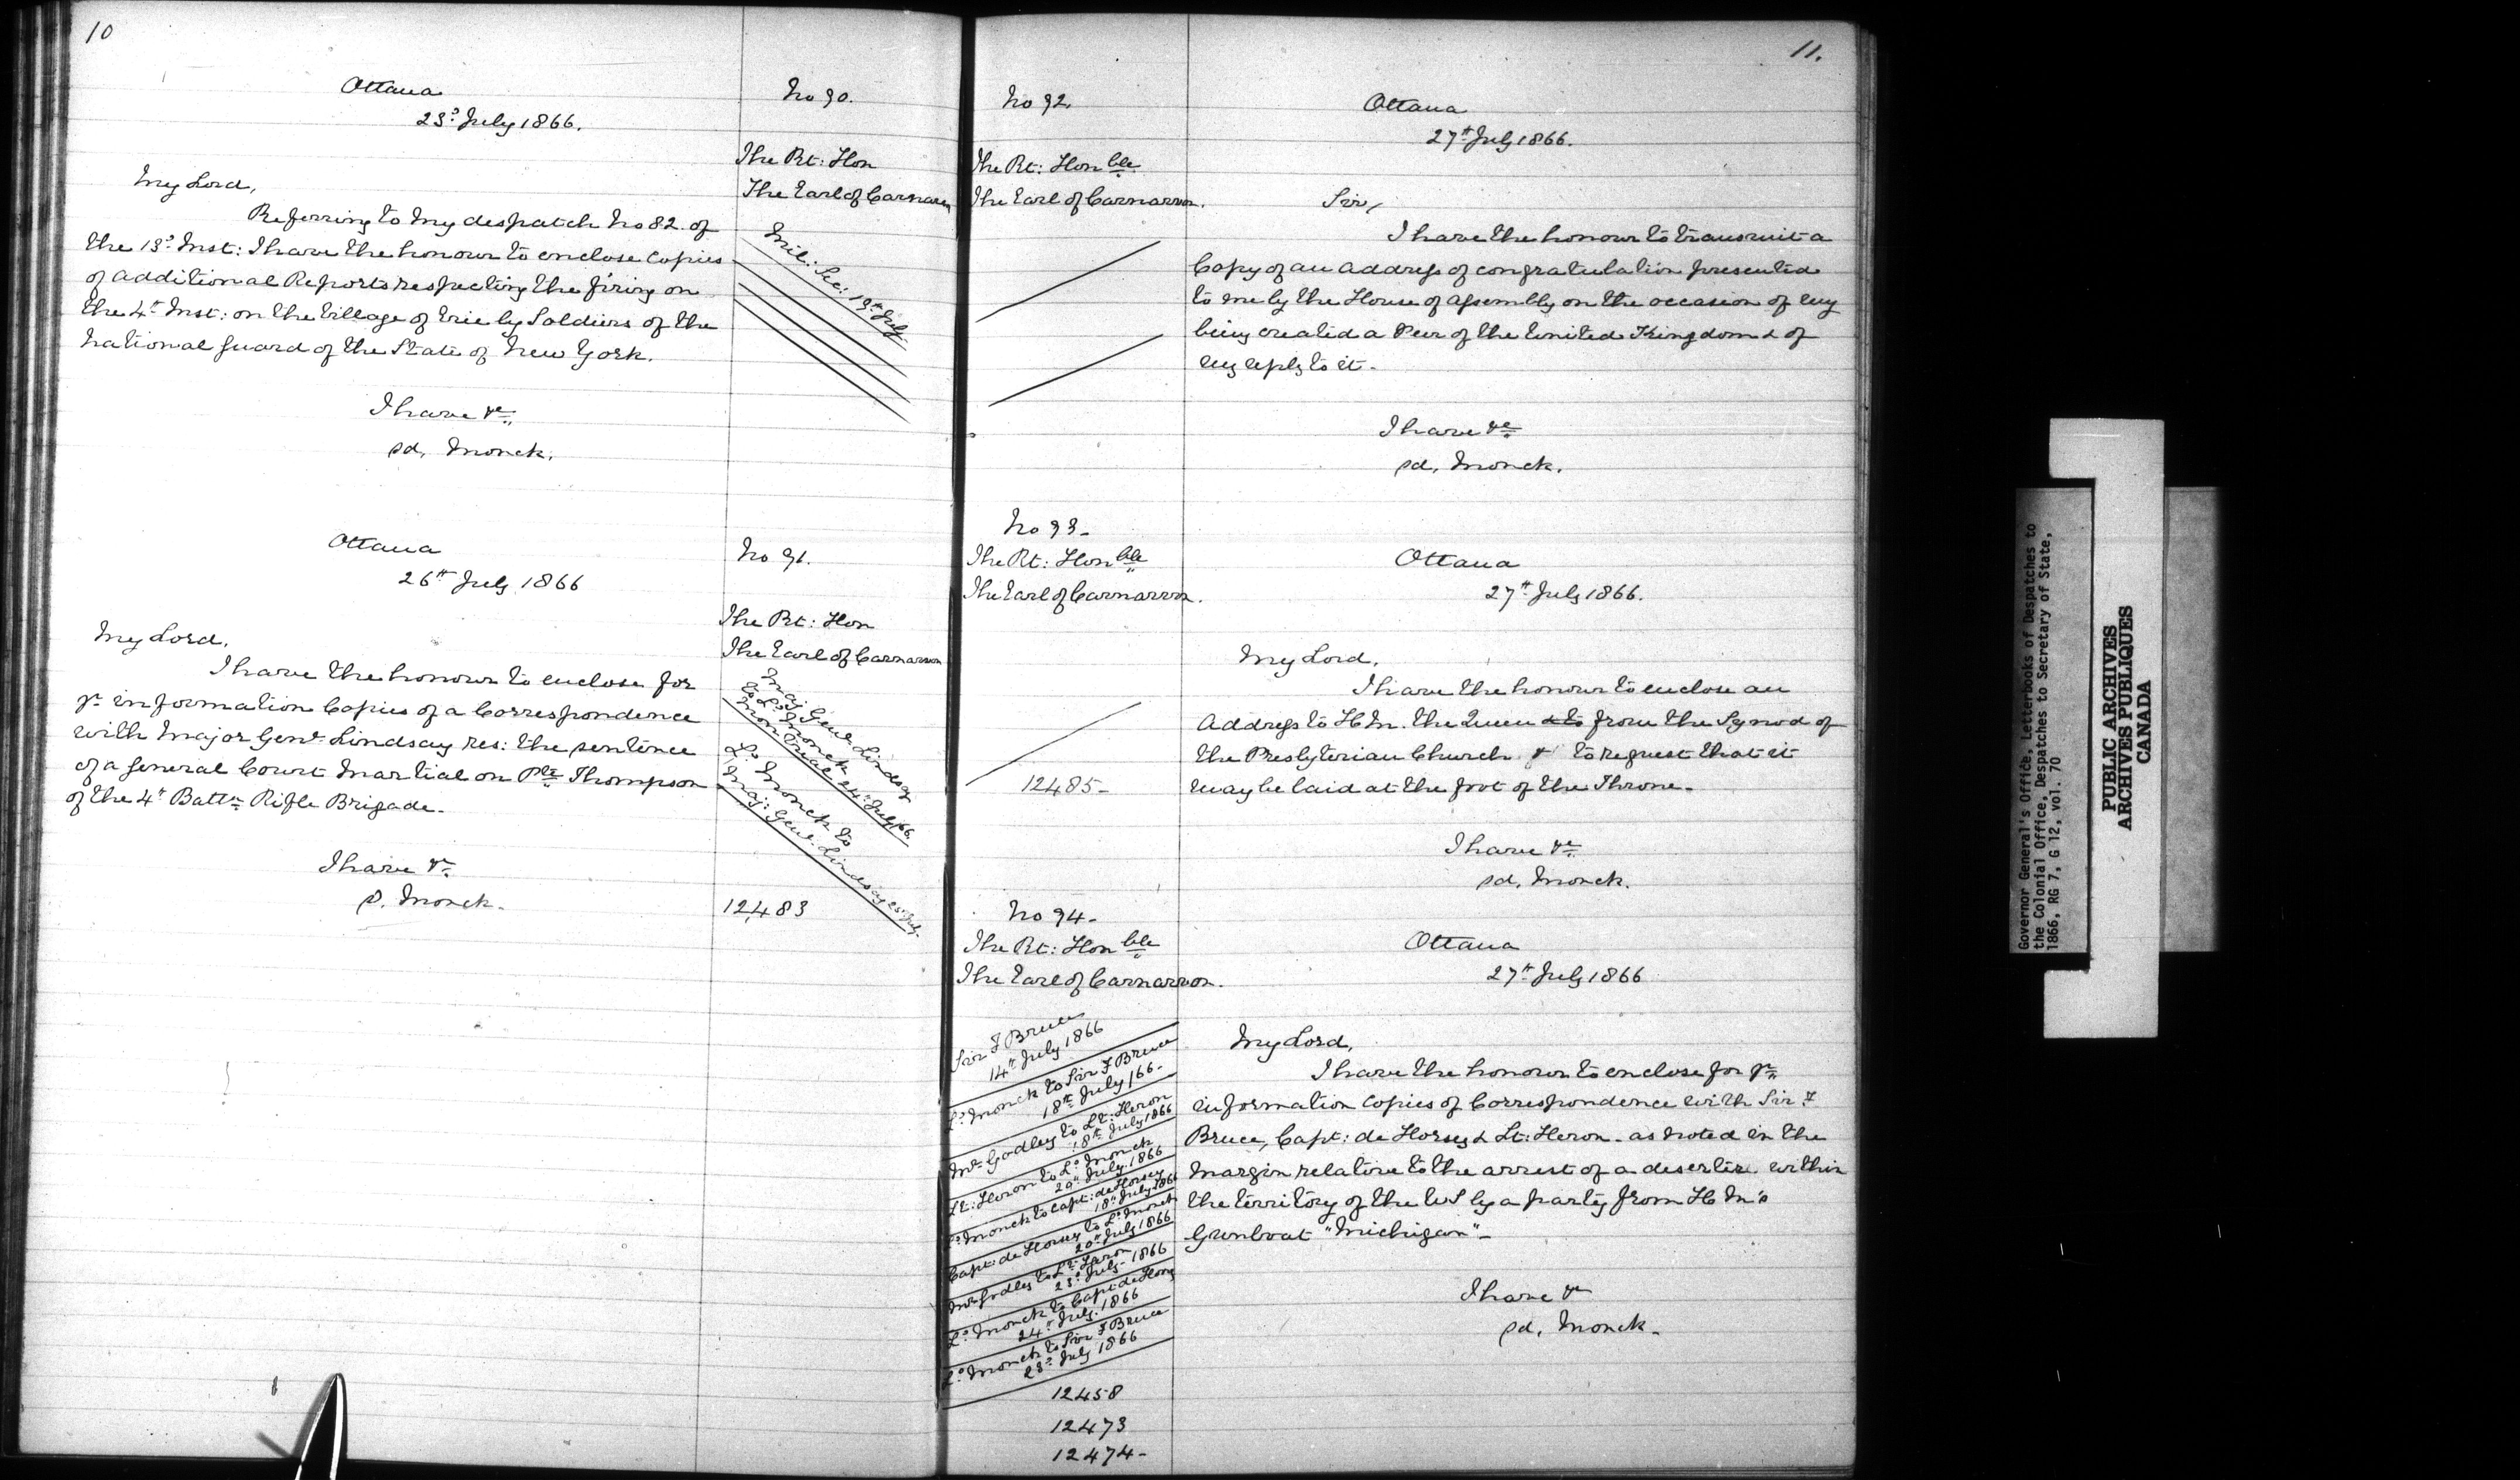 10
Ottawa
23d July 1866.
No 90.
The Rt: Hon
The Earl of Carnarvon
My Lord,
Referring to my despatch No 82. of
the 13d Inst: I have the honour to enclose copies
of additional Reports respecting the firing on
the 4th Inst: on the Village of Erie by Soldiers of the
National Guard of the State of New York.
Mil: Sec: 19th July
I have &c.
sd, Monck.
Ottawa
26th July 1866
No 91.
The Rt: Hon
The Earl of Carnarvon
My Lord,
I have the honour to enclose for
yr information Copies of a Correspondence
with Major Genl Lindsay res: the sentence
of a General Court Martial on Pte Thompson
of the 4th Battn Rifle Brigade.
Maj Genl Lindsay
to Ld Monck
Montreal 24th July /66.
Ld Monck to
Maj: Genl Lindsay 25th July.
I have &c.
s. Monck.
12483
11.
No 92.
The Rt: Honble
The Earl of Carnarvon.
Ottawa
27th July 1866.
Sir,
I have the honour to transmit a
Copy of an address of congratulation presented
to me by the House of Assembly on the occasion of my
being created a Peer of the United Kingdom & of
my reply to it.
I have &c
sd, Monck.
No 93-
The Rt: Honble
The Earl of Carnarvon.
Ottawa
27th July 1866.
My Lord,
I have the honour to enclose an
Address to H M. the Queen & to from the Synod of
the Presbyterian Church & to request that it
may be laid at the foot of the Throne-
12485-
I have &c
sd, Monck.
No 94-
The Rt: Honble
The Earl of Carnarvon.
Ottawa
27th July 1866
My Lord,
I have the honour to enclose for yr
information copies of Correspondence with Sir F
Bruce, Capt: de Horsey & Lt: Heron- as noted in the
margin relative to the arrest of a deserter within
the territory of the US by a party from H M's
Gunboat "Michigan"-
Sir F Bruce
14th July 1866
Ld Monck to Sir F Bruce
18th July /66-
Mr Godley to Lt: Heron
18th July 1866
Lt: Heron to Ld Monck
20th July 1866
Ld Monck to Capt: de Horsey
18th July 1866
Capt: de Horsey to Ld Monck
20th July 1866
Mr Godley to Lt: Heron
23d July- 1866
Ld Monck to Capt: de Horsey
24th July. 1866
Ld Monck to Sir F Bruce
23d July 1866
12458
12473
12474-
I have &c
sd, Monck-
Governor General's Office, Letterbooks of Despatches to
the Colonial Office, Despatches to Secretary of State,
1866, RG 7, G 12, vol. 70
PUBLIC ARCHIVES
ARCHIVES PUBLIQUES
CANADA